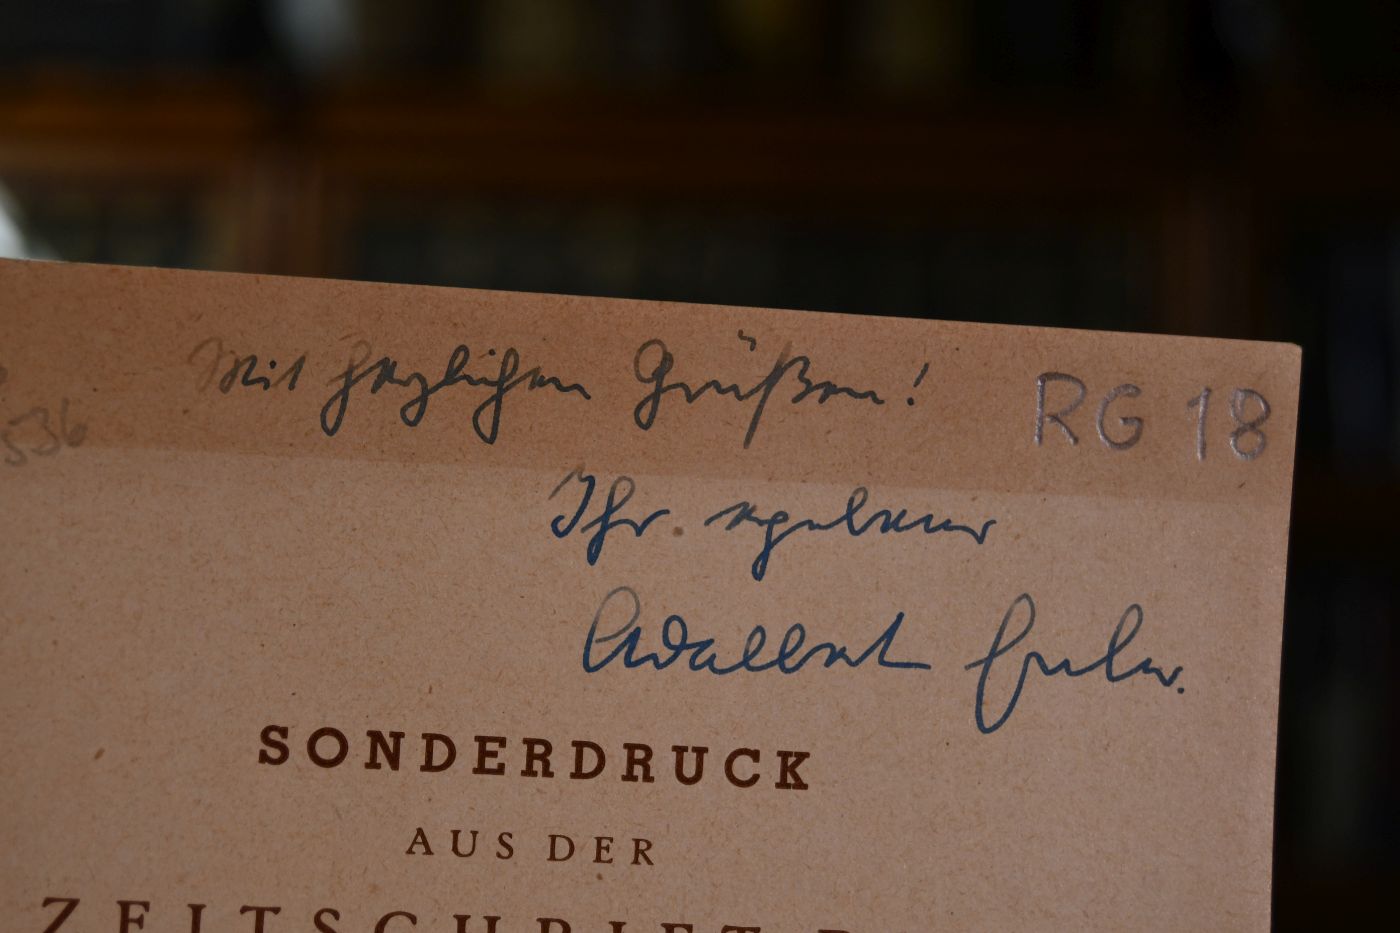 Mit herzlichen Grüßen!
RG 18
536
Ihr ergebener
Adalbert Erler.
SONDERDRUCK
AUS DER
ZEITSCHRIFT